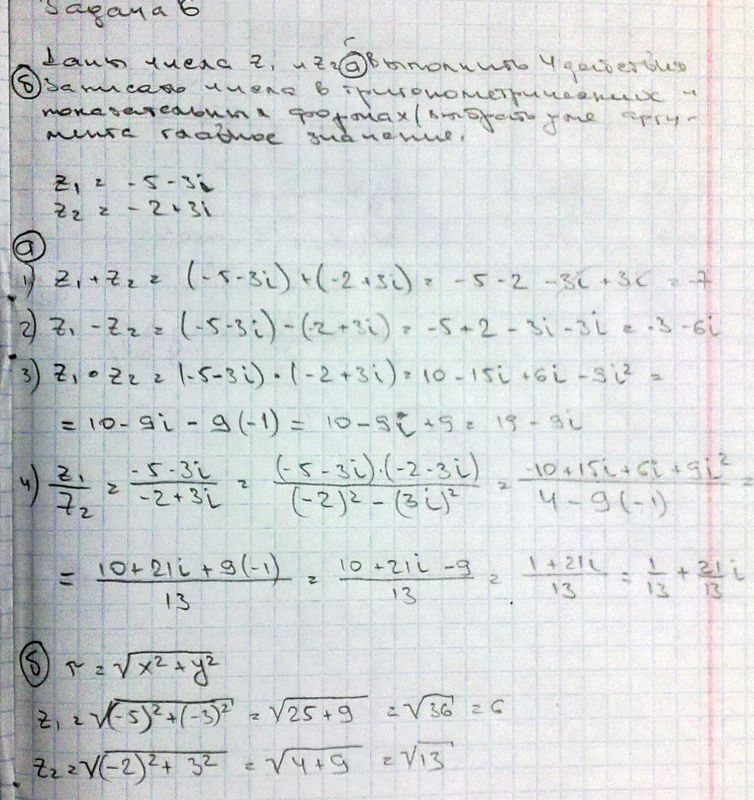 Задача 6
Даны числа z₁ и z₂ а) выполнить 4 действия
б) Записать числа в тригонометрических и
показательных формах (выбрать у же аргу-
мента главное значение.
z₁ = -5-3i
z₂ = -2+3i
а)
1) z₁ + z₂ = (-5-3i) + (-2+3i) = -5-2 -3i+3i = -7
2) z₁ - z₂ = (-5-3i) - (-2+3i) = -5+2 -3i-3i = -3-6i
3) z₁ • z₂ = (-5-3i) • (-2+3i) = 10-15i+6i-9i² =
= 10-9i - 9(-1) = 10-9i+9 = 19-9i
4) z₁/z₂ = (-5-3i)/(-2+3i) = ((-5-3i)•(-2-3i))/((-2)²-(3i)²) = (10+15i+6i+9i²)/(4-9(-1)) =
= (10+21i+9(-1))/13 = (10+21i-9)/13 = (1+21i)/13 = 1/13 + 21/13 i
б) r = √(x²+y²)
z₁ = √((-5)²+(-3)²) = √(25+9) = √36 = 6
z₂ = √((-2)²+3²) = √(4+9) = √13